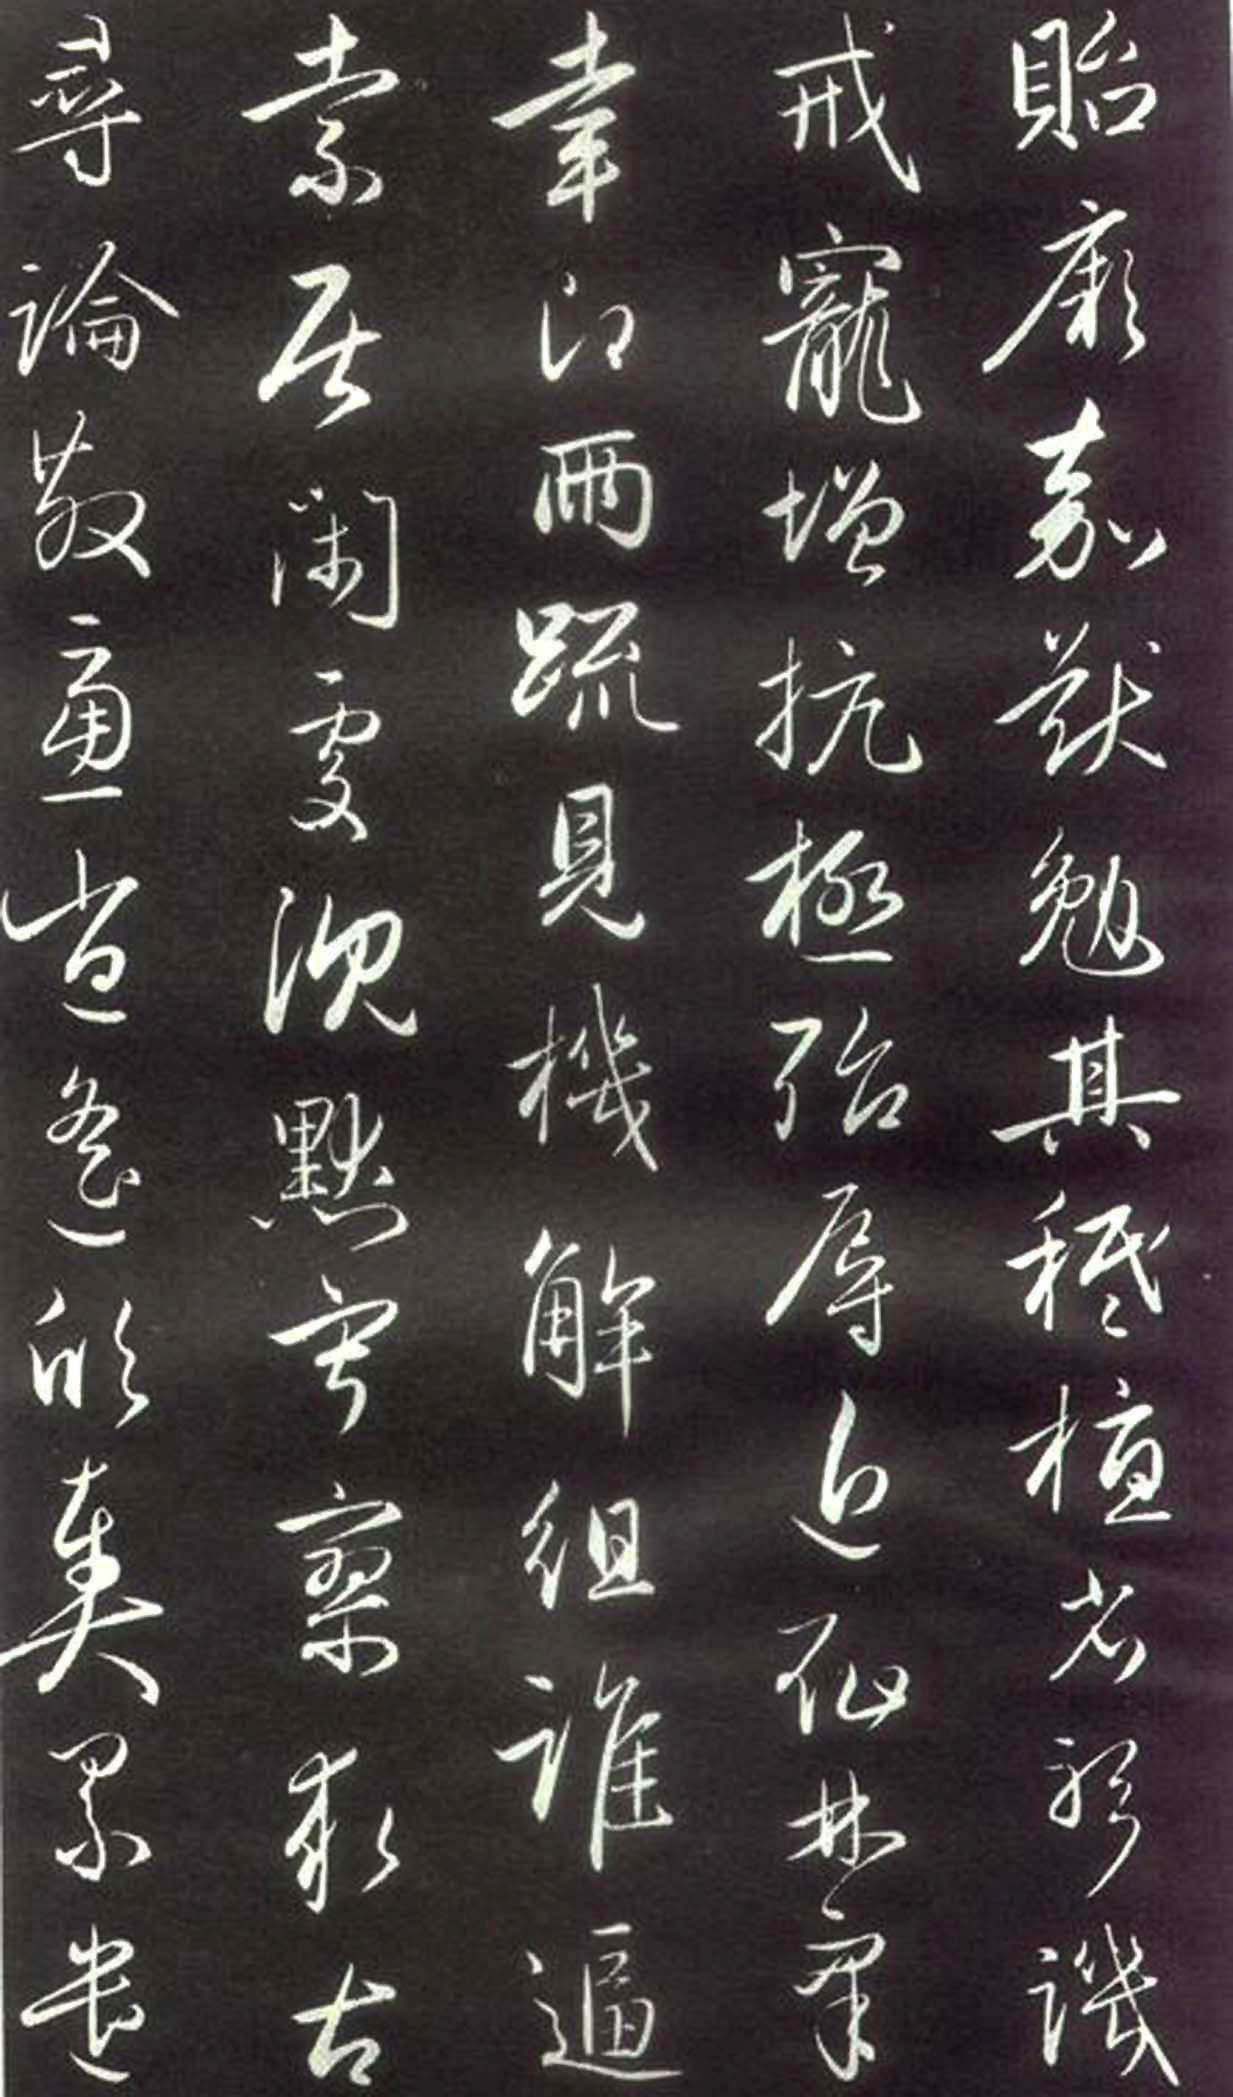 貽厥嘉猷勉其祗植省躬譏
戒寵增抗極殆辱近恥林睾
幸即兩疏見機解組誰逼
索居閑處沉默寂寥求古
尋論散慮逍遙欣奏累遣